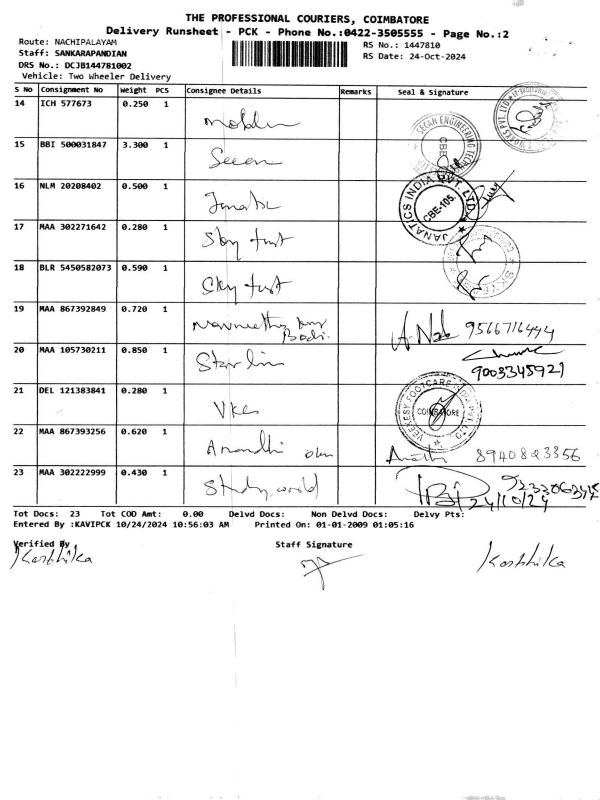 THE PROFESSIONAL COURIERS, COIMBATORE
Delivery Runsheet - PCK - Phone No.:0422-3505555 - Page No.:2
Route: NACHIPALAYAM
RS No.: 1447810
Staff: SANKARAPANDIAN
RS Date: 24-Oct-2024
DRS No.: DCJB144781002
Vehicle: Two Wheeler Delivery
S No Consignment No Weight PCS Consignee Details Remarks Seal & Signature
14 ICH 577673 0.250 1
15 BBI 500031847 3.300 1 Secan
SECAN ENGINEERING
16 NLM 20208402 0.500 1
JANATICS INDIA PVT. LTD. CBE-105.
17 MAA 302271642 0.280 1 Sky fust
18 BLR 5450582073 0.590 1 Sky fust
19 MAA 867392849 0.720 1 9566716444
20 MAA 105730211 0.850 1 Star lin 9003345921
21 DEL 121383841 0.280 1 Vkc
VEEKESY FOOTCARE INDIA PVT LTD COIMBATORE
22 MAA 867393256 0.620 1 Anandhi 8940823356
23 MAA 302222999 0.430 1 Study world
24/10/24
Tot Docs: 23 Tot COD Amt: 0.00 Delvd Docs: Non Delvd Docs: Delvy Pts:
Entered By :KAVIPCK 10/24/2024 10:56:03 AM Printed On: 01-01-2009 01:05:16
Verified By Staff Signature
Karthika Karthika